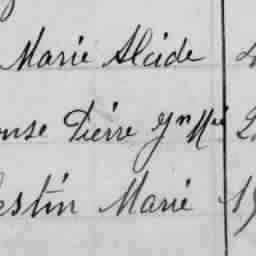 Marie Alcide
onse Pierre Jn Mie
estin Marie 19